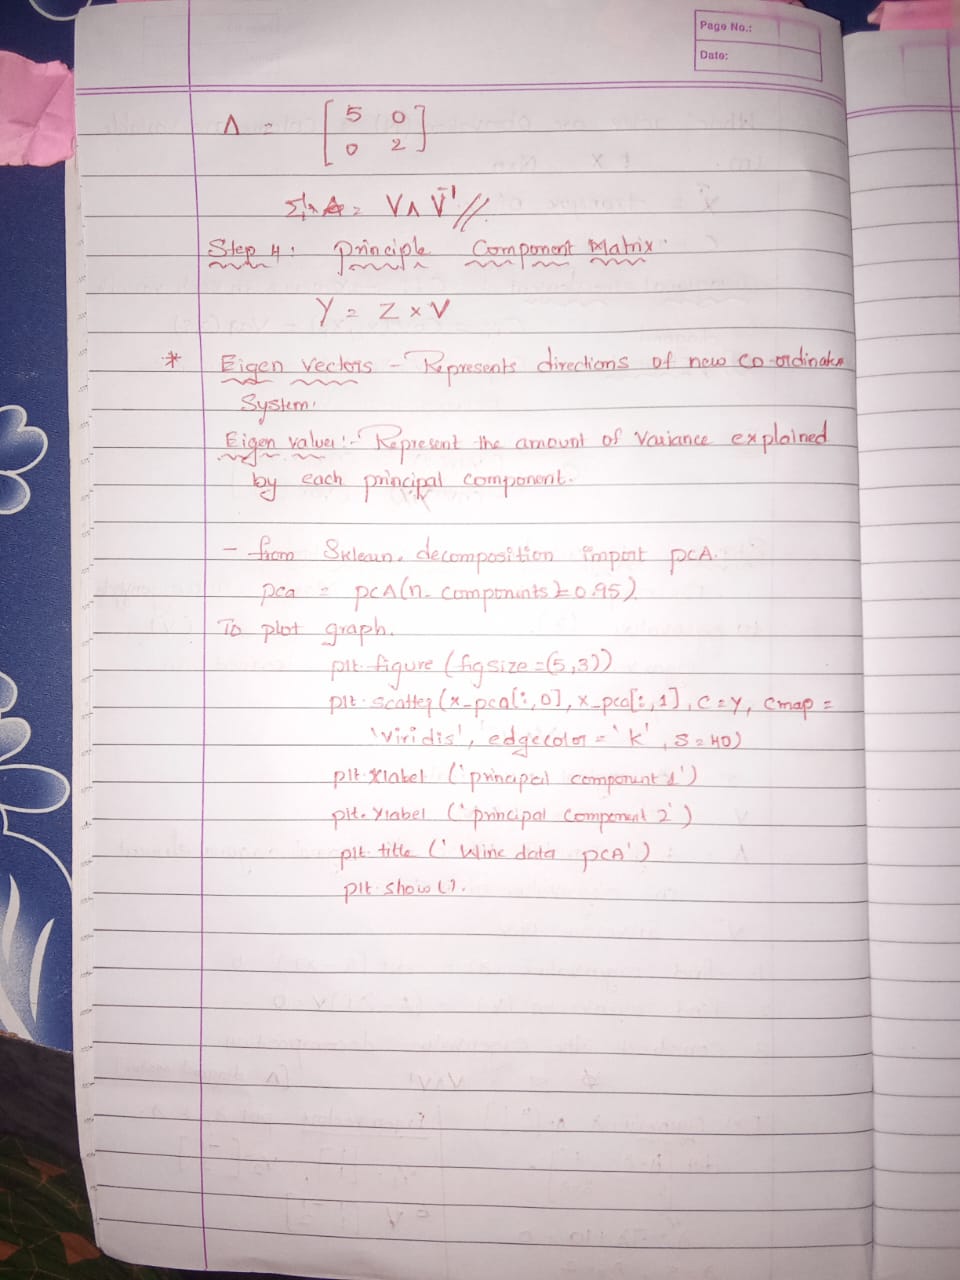 Page No.:
Date:
Λ = [ 5 0
0 2 ]
= V Λ V⁻¹ //
Step 4: Principle Component Matrix.
Y = Z × V
* Eigen vectors - Represents directions of new co-ordinate
System.
Eigen values:- Represent the amount of Variance explained
by each principal component.
- from Sklearn. decomposition import pcA.
pca = pcA(n_components = 0.95)
To plot graph.
plt.figure (figsize =(5,3))
plt.scatter (x_pca[:,0], x_pca[:,1], c=y, cmap =
'viridis', edgecolor = 'k', s=40)
plt.xlabel ('principal component 1')
plt.ylabel ('principal component 2')
plt.title (' Wine data pcA')
plt.show().